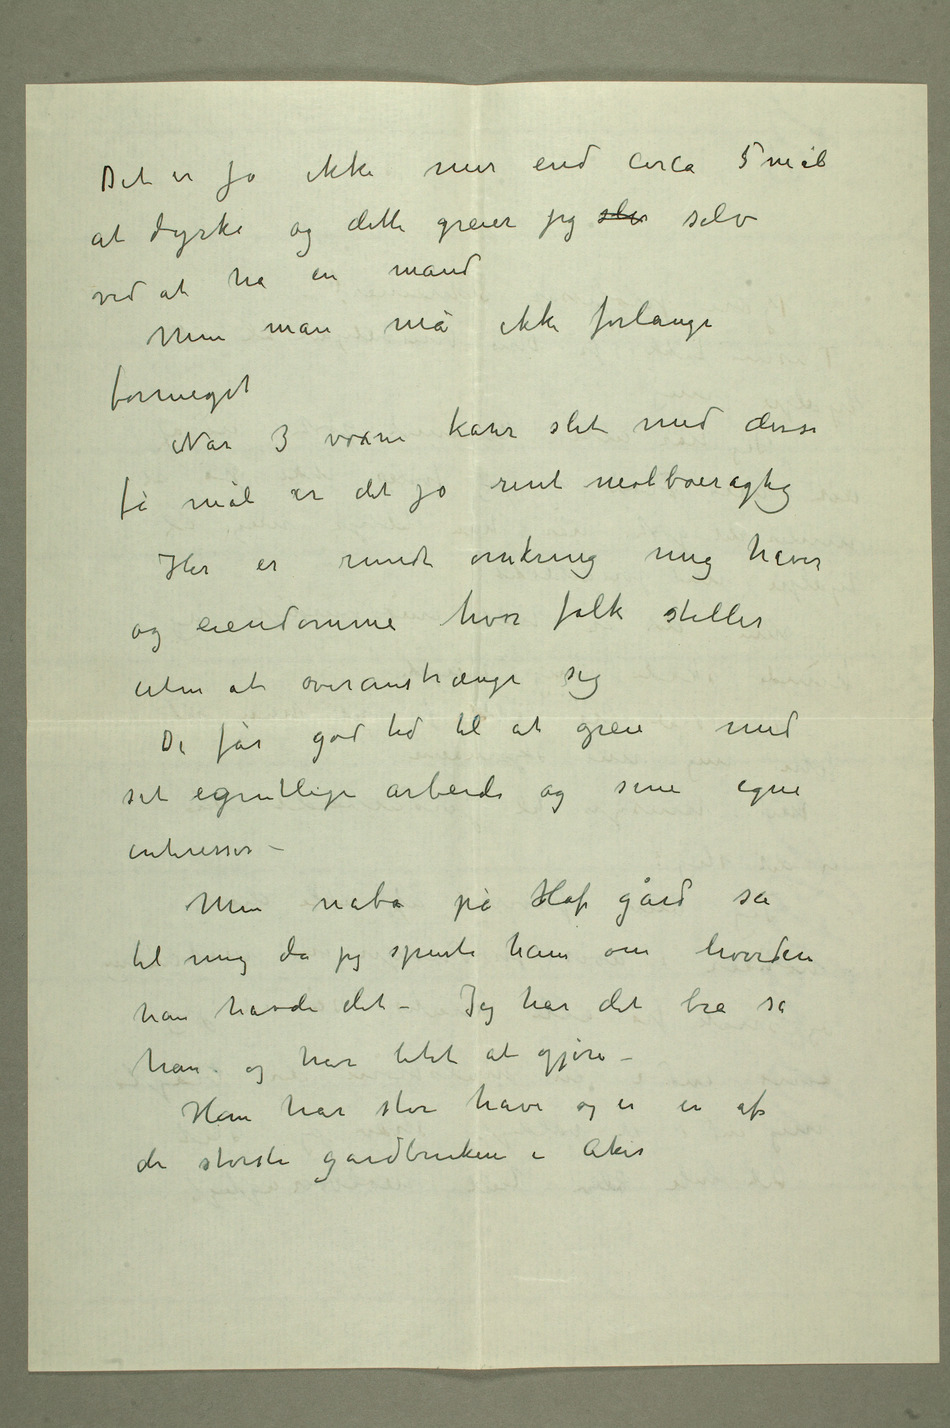 Det er jo ikke mer end circa 5 mål
at dyrke og dette greier jeg slv selv
ved at ha en mand
Men man må ikke forlange
formeget
Når 3 voxne karer slet med disse
få mål er det jo rent molboeragtig
Her er rundt omkring mig haver
og eiendomme hvor folk steller
uten at overanstrænge sig
De får god tid til at greie med
sit egentlige arbeide og sine egne
interesser –
Min nabo på Hof gård sa
til mig da jeg spurte ham om hvordan
han havde det – Jeg har det bra sa
han – og har litet at gjøre –
Han har stor have og er en af
de største gårdbrukere i Aker